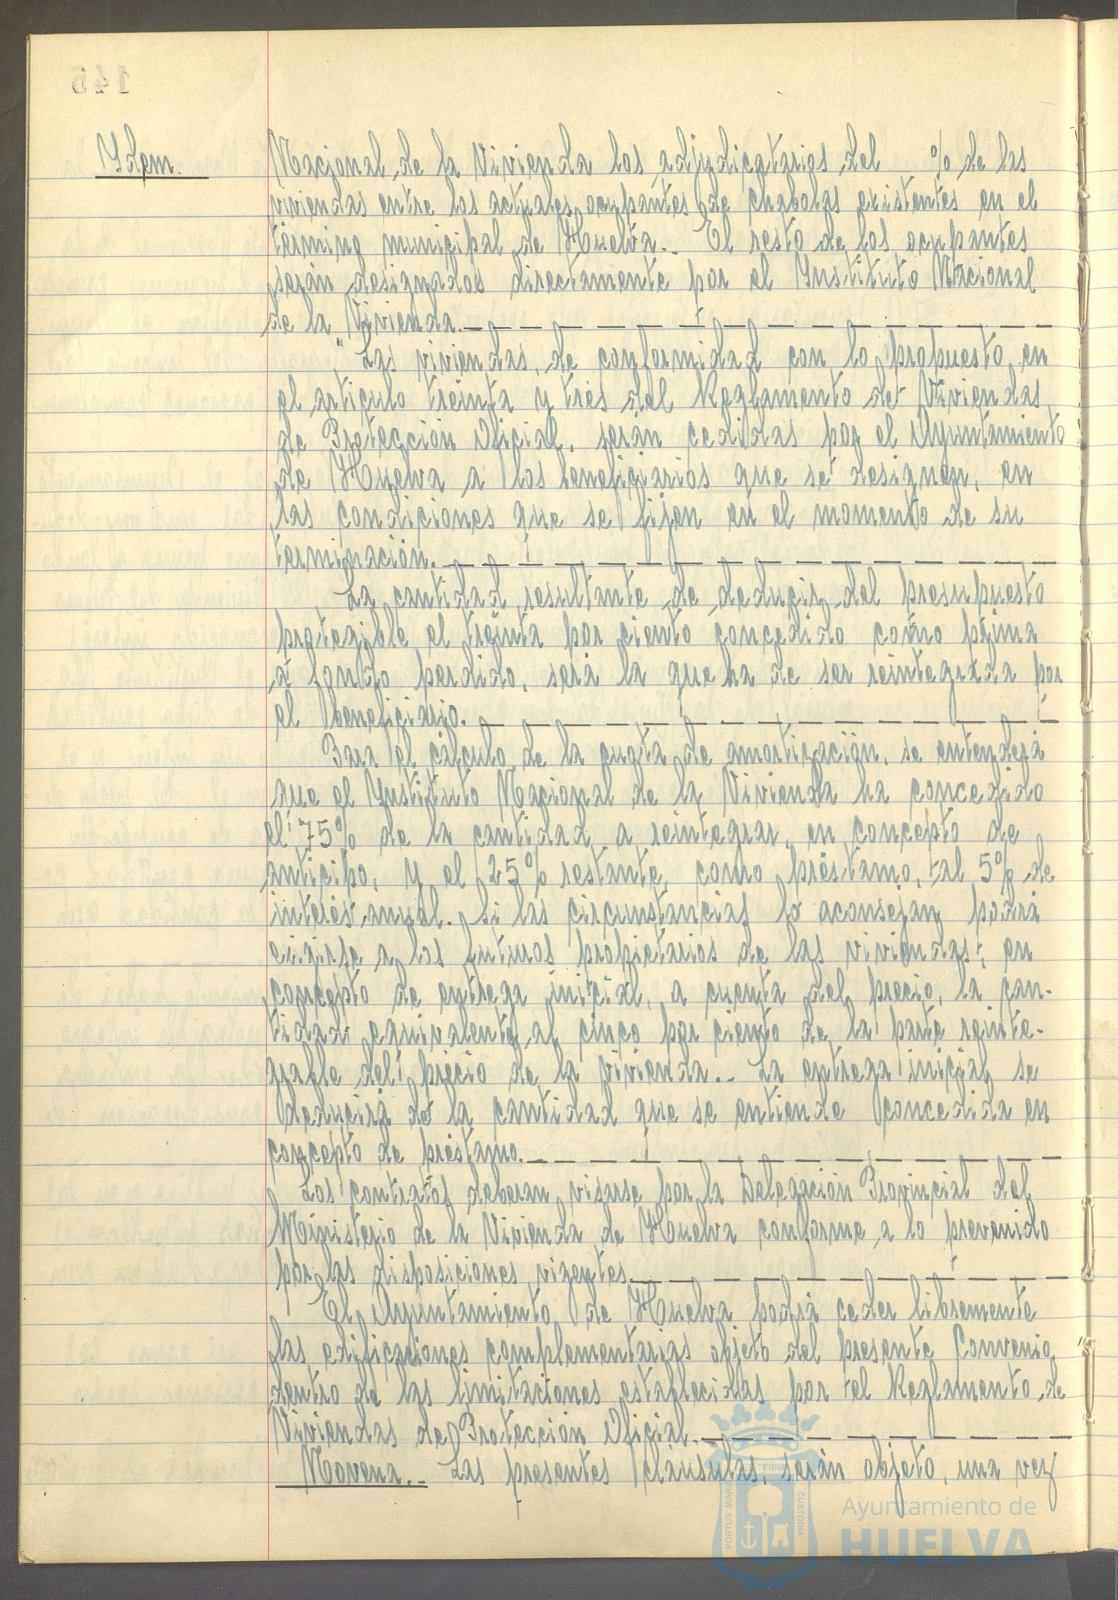 Idem.
Nacional de la Vivienda los adjudicatarios del % de las
viviendas entre los actuales ocupantes de chabolas existentes en el
término municipal de Huelva.- El resto de los ocupantes
serán designados directamente por el Instituto Nacional
de la Vivienda.
Las viviendas, de conformidad con lo propuesto en
el artículo treinta y tres del Reglamento de Viviendas
de Protección Oficial, serán cedidas por el Ayuntamiento
de Huelva a los beneficiarios que se designen, en
las condiciones que se fijen en el momento de su
terminación.
La cantidad resultante de deducir del presupuesto
protegible el treinta por ciento concedido como prima
a fondo perdido, será la que ha de ser reintegrada por
el beneficiario.
Para el cálculo de la cuota de amortización, se entenderá
que el Instituto Nacional de la Vivienda ha concedido
el 75% de la cantidad a reintegrar, en concepto de
anticipo, y el 25% restante, como préstamo, al 5% de
interés anual. Si las circunstancias lo aconsejan podrá
exigirse a los futuros propietarios de las viviendas, en
concepto de entrega inicial, a cuenta del precio, la can-
tidad equivalente al cinco por ciento de la parte reinte-
grable del precio de la vivienda.- La entrega inicial se
deducirá de la cantidad que se entiende concedida en
concepto de préstamo.
Los contratos deberan visarse por la Delegación Provincial del
Ministerio de la Vivienda de Huelva conforme a lo prevenido
por las disposiciones vigentes.
El Ayuntamiento de Huelva podrá ceder libremente
las edificaciones complementarias objeto del presente Convenio,
dentro de las limitaciones establecidas por el Reglamento de
Viviendas de Protección Oficial.
Novena.- Las presentes cláusulas, serán objeto, una vez
PORTUS MARIS ET TERRAE CUSTODIA
Ayuntamiento de
HUELVA